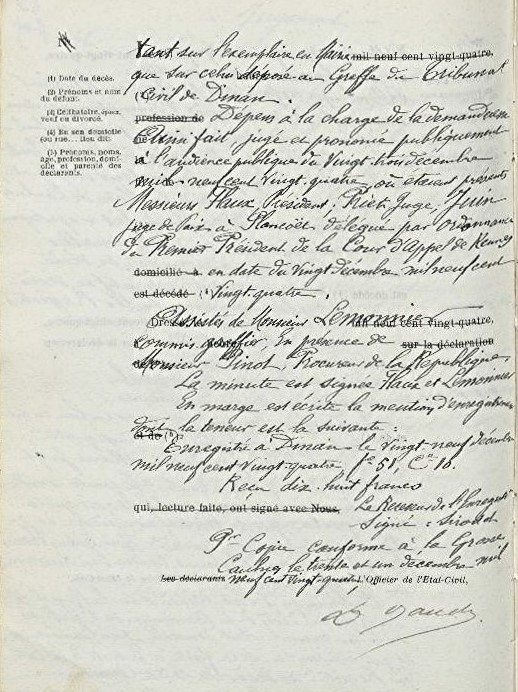 (1) Date du décès.
(2) Prénoms et nom du défunt.
(3) Célibataire, époux, veuf ou divorcé.
(4) En son domicile (ou rue... lieu dit)
(5) Prénoms, noms, âge, profession, domicile et parenté des déclarants.
tant sur l'exemplaire en Mairie mil neuf cent vingt-quatre,
que sur celui déposé au Greffe du Tribunal
Civil de Dinan.
profession de Dépens à la charge de la demanderesse
Ainsi fait jugé et prononcé publiquement
à l'audience publique du Vingt-trois décembre
mil neuf cent vingt-quatre, où étaient présents
Messieurs Haux, Président, juge,
juge de Paix à Plancoët délégué par ordonnance
du Premier Président de la Cour d'Appel de Rennes
domicilié à en date du vingt décembre mil neuf cent
est décédé (4) Vingt-quatre.
Dressé Assistés de Monsieur Lemonnier mil neuf cent vingt-quatre,
commis greffier, En présence de sur la déclaration
de Monsieur Pinot, Procureur de la République
La minute est signée Haux et Lemonnier
En marge est écrite la mention d'enregistrement
dont la teneur est la suivante :
et de (5)
Enregistré à Dinan le vingt neuf décembre
mil neuf cent vingt-quatre fo 51, Ce 10.
Reçu dix-huit francs
qui, lecture faite, ont signé avec Nous, Le Receveur de l'Enregist
Signé :
Pr Copie conforme à la Grosse
le trente et un décembre mil
Les déclarants neuf cent vingt-quatre L'Officier de l'Etat-Civil,